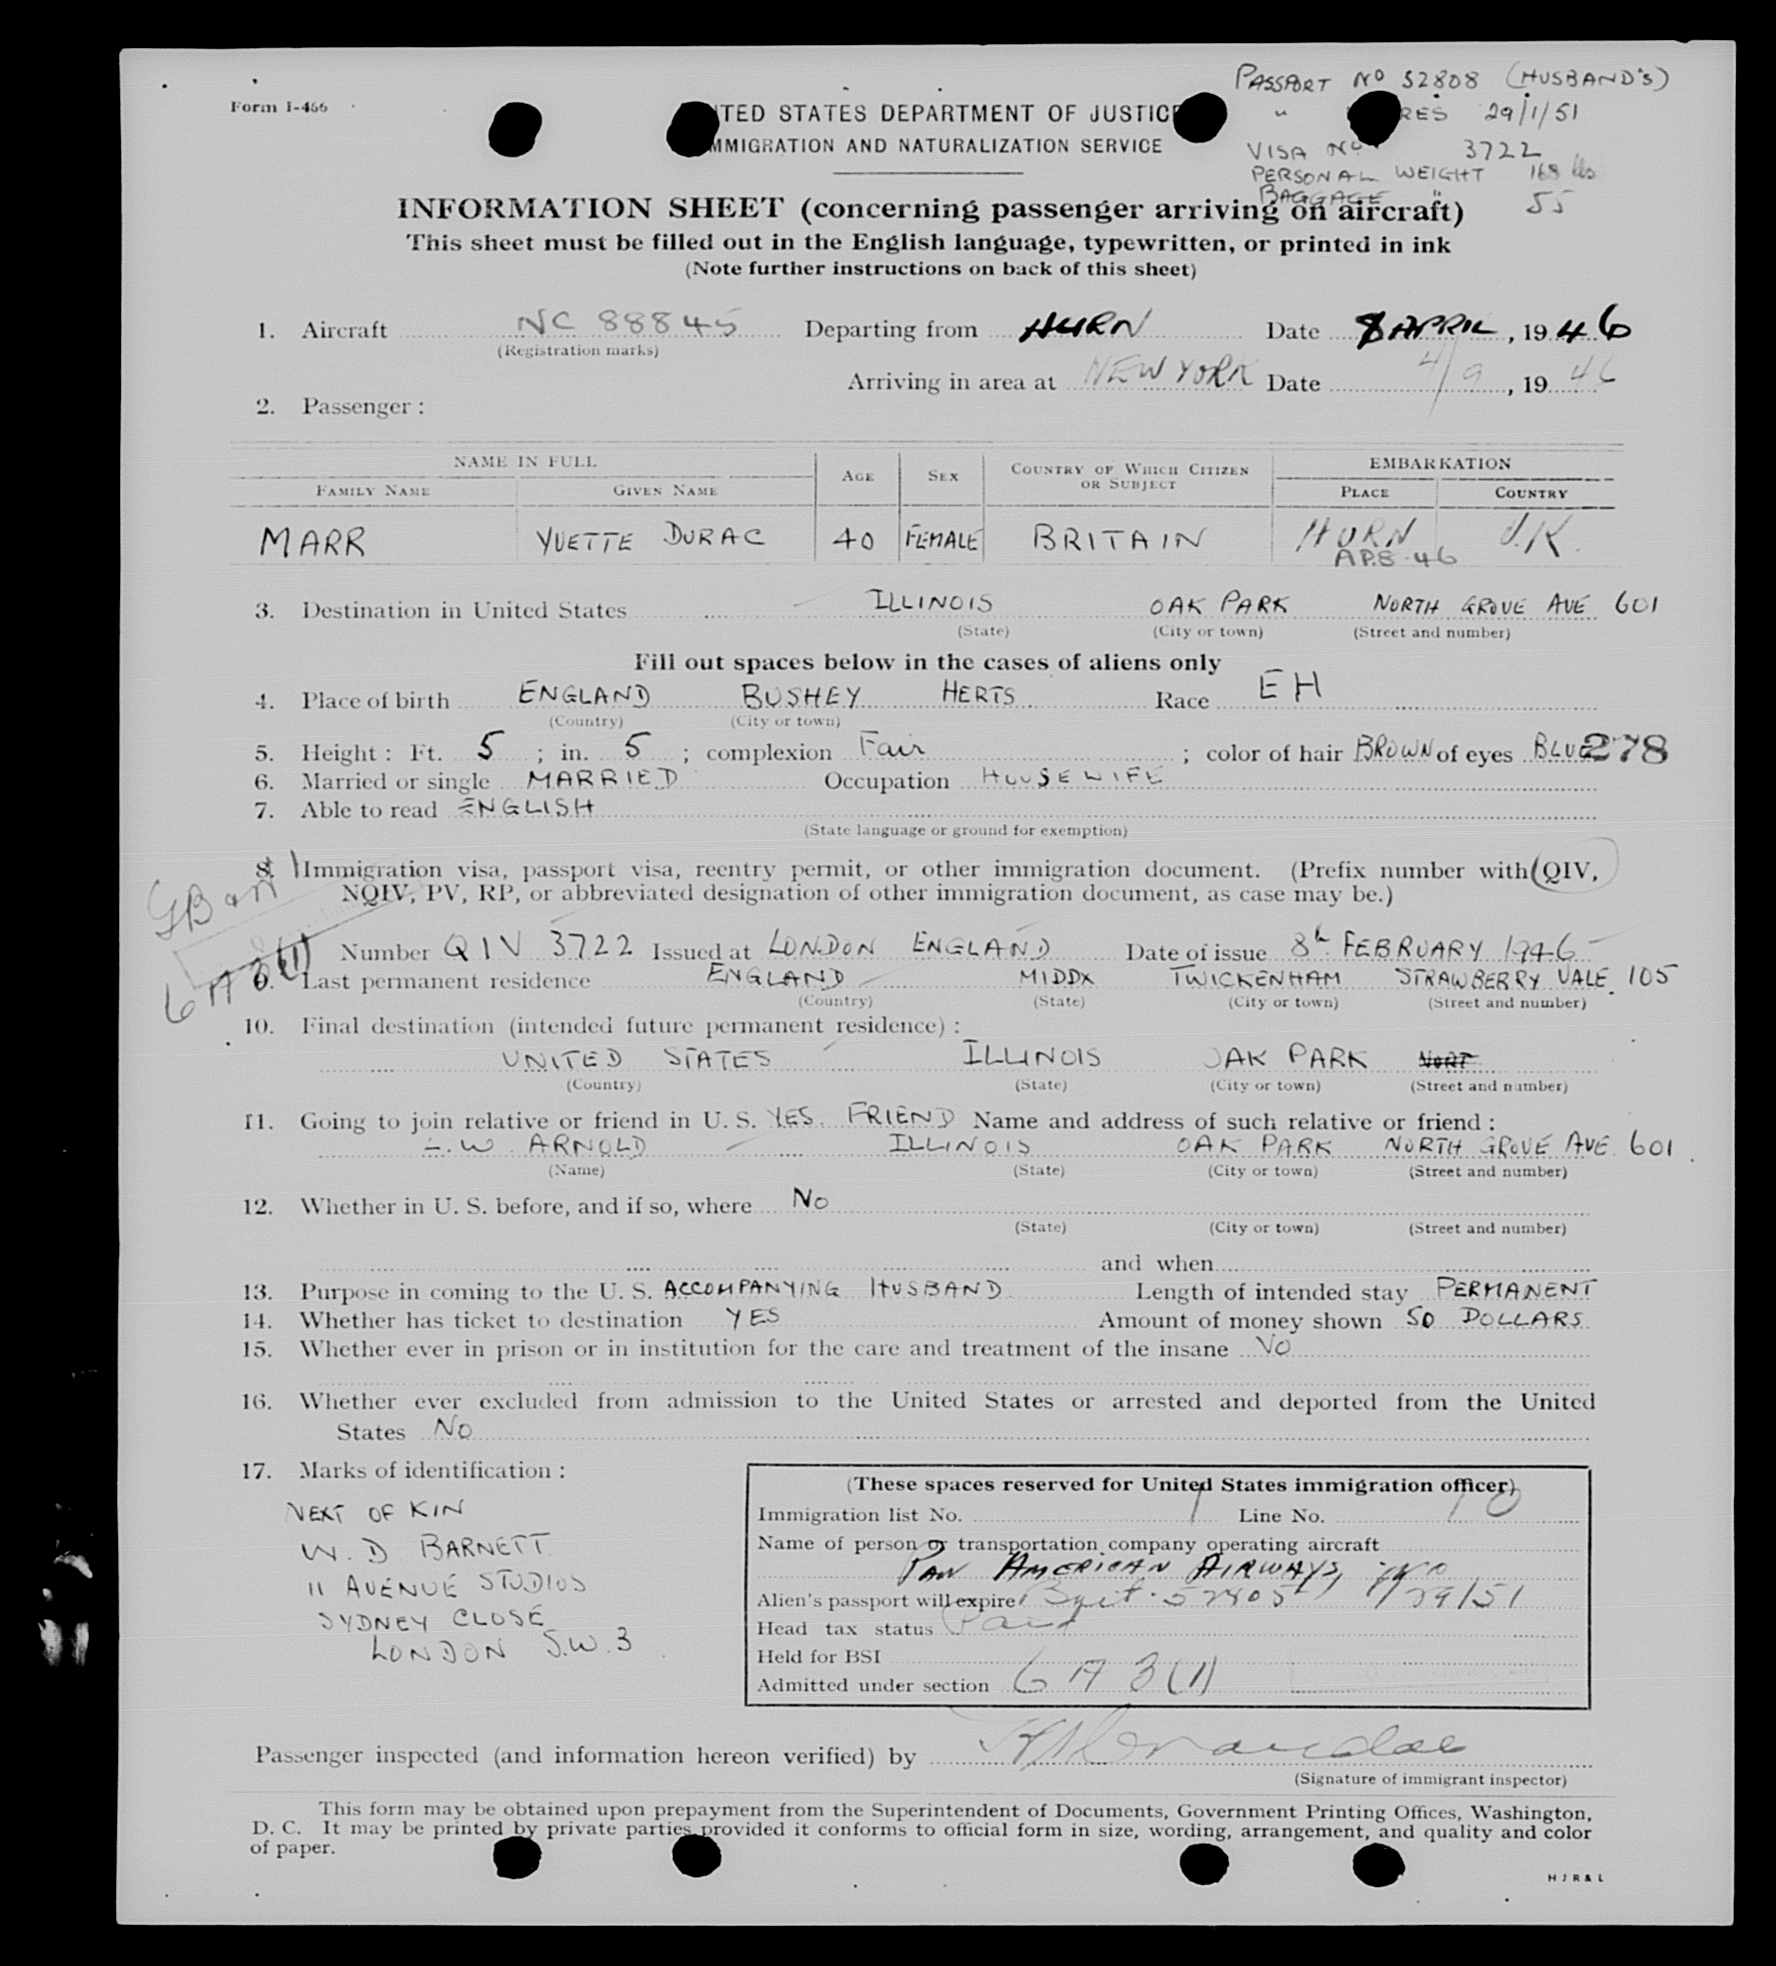 Form I-466
PASSPORT NO 52808 (HUSBAND'S)
" RES 29/1/51
VISA NO 3722
PERSONAL WEIGHT 168 lbs
BAGGAGE " 55
ITED STATES DEPARTMENT OF JUSTICE
MMIGRATION AND NATURALIZATION SERVICE
INFORMATION SHEET (concerning passenger arriving on aircraft)
This sheet must be filled out in the English language, typewritten, or printed in ink
(Note further instructions on back of this sheet)
1. Aircraft NC 88845 Departing from HURN Date 8 APRIL, 1946
(Registration marks)
Arriving in area at NEW YORK Date 4/9, 1946
2. Passenger :
NAME IN FULL AGE SEX COUNTRY OF WHICH CITIZEN OR SUBJECT EMBARKATION
FAMILY NAME GIVEN NAME PLACE COUNTRY
MARR YVETTE DURAC 40 FEMALE BRITAIN HURN U.K.
AP.8.46
3. Destination in United States ILLINOIS OAK PARK NORTH GROVE AVE 601
(State) (City or town) (Street and number)
Fill out spaces below in the cases of aliens only
4. Place of birth ENGLAND BUSHEY HERTS Race EH
(Country) (City or town)
5. Height : Ft. 5 ; in. 5 ; complexion Fair ; color of hair BROWN of eyes BLUE 278
6. Married or single MARRIED Occupation HOUSEWIFE
7. Able to read ENGLISH
(State language or ground for exemption)
8. Immigration visa, passport visa, reentry permit, or other immigration document. (Prefix number with QIV,
NQIV, PV, RP, or abbreviated designation of other immigration document, as case may be.)
Number QIV 3722 Issued at LONDON ENGLAND Date of issue 8th FEBRUARY 1946
6 A 3(1)
9. Last permanent residence ENGLAND MIDDX TWICKENHAM STRAWBERRY VALE 105
(Country) (State) (City or town) (Street and number)
10. Final destination (intended future permanent residence) :
UNITED STATES ILLINOIS OAK PARK NORT
(Country) (State) (City or town) (Street and number)
11. Going to join relative or friend in U. S. YES. FRIEND Name and address of such relative or friend :
W. ARNOLD ILLINOIS OAK PARK NORTH GROVE AVE 601
(Name) (State) (City or town) (Street and number)
12. Whether in U. S. before, and if so, where No
(State) (City or town) (Street and number)
and when
13. Purpose in coming to the U. S. ACCOMPANYING HUSBAND Length of intended stay PERMANENT
14. Whether has ticket to destination YES Amount of money shown 50 DOLLARS
15. Whether ever in prison or in institution for the care and treatment of the insane NO
16. Whether ever excluded from admission to the United States or arrested and deported from the United
States No
17. Marks of identification :
NEXT OF KIN
W. D BARNETT
11 AVENUE STUDIOS
SYDNEY CLOSE
LONDON S.W.3
(These spaces reserved for United States immigration officer)
Immigration list No. 1 Line No. 10
Name of person or transportation company operating aircraft
PAN AMERICAN AIRWAYS,
Alien's passport will expire 1/29/51
Head tax status Paid
Held for BSI
Admitted under section 6 A 3(1)
Passenger inspected (and information hereon verified) by
(Signature of immigrant inspector)
This form may be obtained upon prepayment from the Superintendent of Documents, Government Printing Offices, Washington,
D. C. It may be printed by private parties provided it conforms to official form in size, wording, arrangement, and quality and color
of paper.
H J R & L